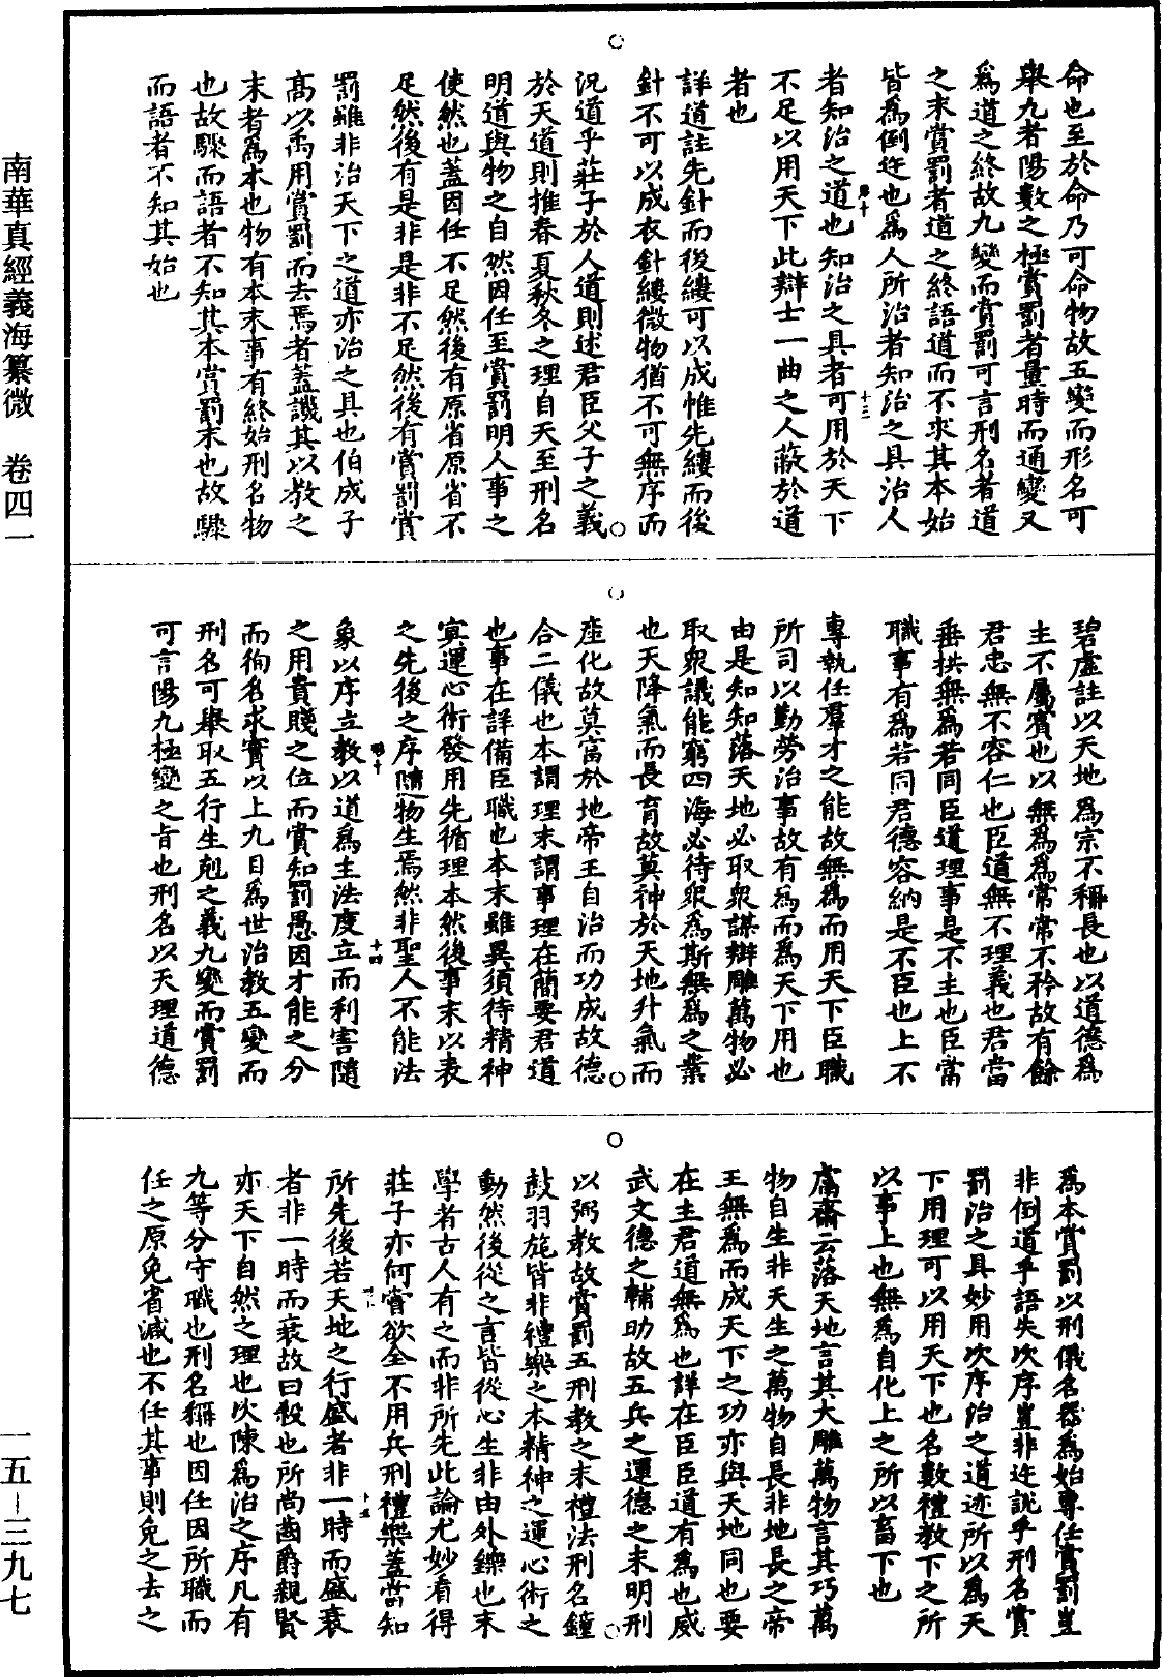 命也至於命乃可命物故五變而形名可
舉九者陽數之極賞罰者量時而通變又
爲道之終故九變而賞罰可言刑名者道
之末賞罰者道之終語道而不求其本始
皆爲倒迕也爲人所治者知治之具治人
者知治之道也知治之具者可用於天下
不足以用天下此辯士一曲之人蔽於道
者也
詳道註先針而後縷可以成帷先縷而後
針不可以成衣針縷微物猶不可無序而
況道乎莊子於人道則述君臣父子之義
於天道則推春夏秋冬之理自天至刑名
明道與物之自然因任至賞罰明人事之
使然也蓋因任不足然後有原省原省不
足然後有是非是非不足然後有賞罰賞
罰雖非治天下之道亦治之具也伯成子
高以禹用賞罰而去焉者蓋譏其以教之
末者爲本也物有本末事有終始刑名物
也故驟而語者不知其本賞罰末也故驟
而語者不知其始也
碧虛註以天地爲宗不稱長也以道德爲
主不屬賓也以無爲爲常常不矜故有餘
君忠無不容仁也臣道無不理義也君當
垂拱無爲若同臣道理事是不主也臣當
職事有爲若同君德容納是不臣也上不
專執任羣才之能故無爲而用天下臣職
所司以勤勞治事故有爲而爲天下用也
由是知知落天地必取衆謀辯雕萬物必
取衆議能窮四海必待衆爲斯無爲之業
也天降氣而長育故莫神於天地升氣而
產化故莫富於地帝王自治而功成故德
合二儀也本謂理末謂事理在簡要君道
也事在詳備臣職也本末雖異須待精神
冥運心術發用先循理本然後事末以表
之先後之序隨物生焉然非聖人不能法
象以序立教以道爲主法度立而利害隨
之用貴賤之位而賞知罰愚因才能之分
而徇名求實以上九目爲世治教五變而
刑名可舉取五行生剋之義九變而賞罰
可言陽九極變之旨也刑名以天理道德
爲本賞罰以刑儀名器爲始專任賞罰豈
非倒道乎語失次序豈非迕說乎刑名賞
罰治之具妙用次序治之道迹所以爲天
下用理可以用天下也名數禮教下之所
以事上也無爲自化上之所以畜下也
鬳齋云落天地言其大雕萬物言其巧萬
物自生非天生之萬物自長非地長之帝
王無爲而成天下之功亦與天地同也要
在主君道無爲也詳在臣臣道有爲也威
武文德之輔助故五兵之運德之末明刑
以弼教故賞罰五刑教之末禮法刑名鐘
鼓羽旄皆非禮樂之本精神之運心術之
動然後從之言皆從心生非由外鑠也末
學者古人有之而非所先此論尤妙看得
莊子亦何嘗欲全不用兵刑禮樂蓋當知
所先後若天地之行盛者非一時而盛衰
者非一時而衰故曰殺也所尚齒爵親賢
亦天下自然之理也次陳爲治之序凡有
九等分守職也刑名稱也因任因所職而
任之原免省減也不任其事則免之去之
南華真經義海纂微　卷四一
一五—三九七